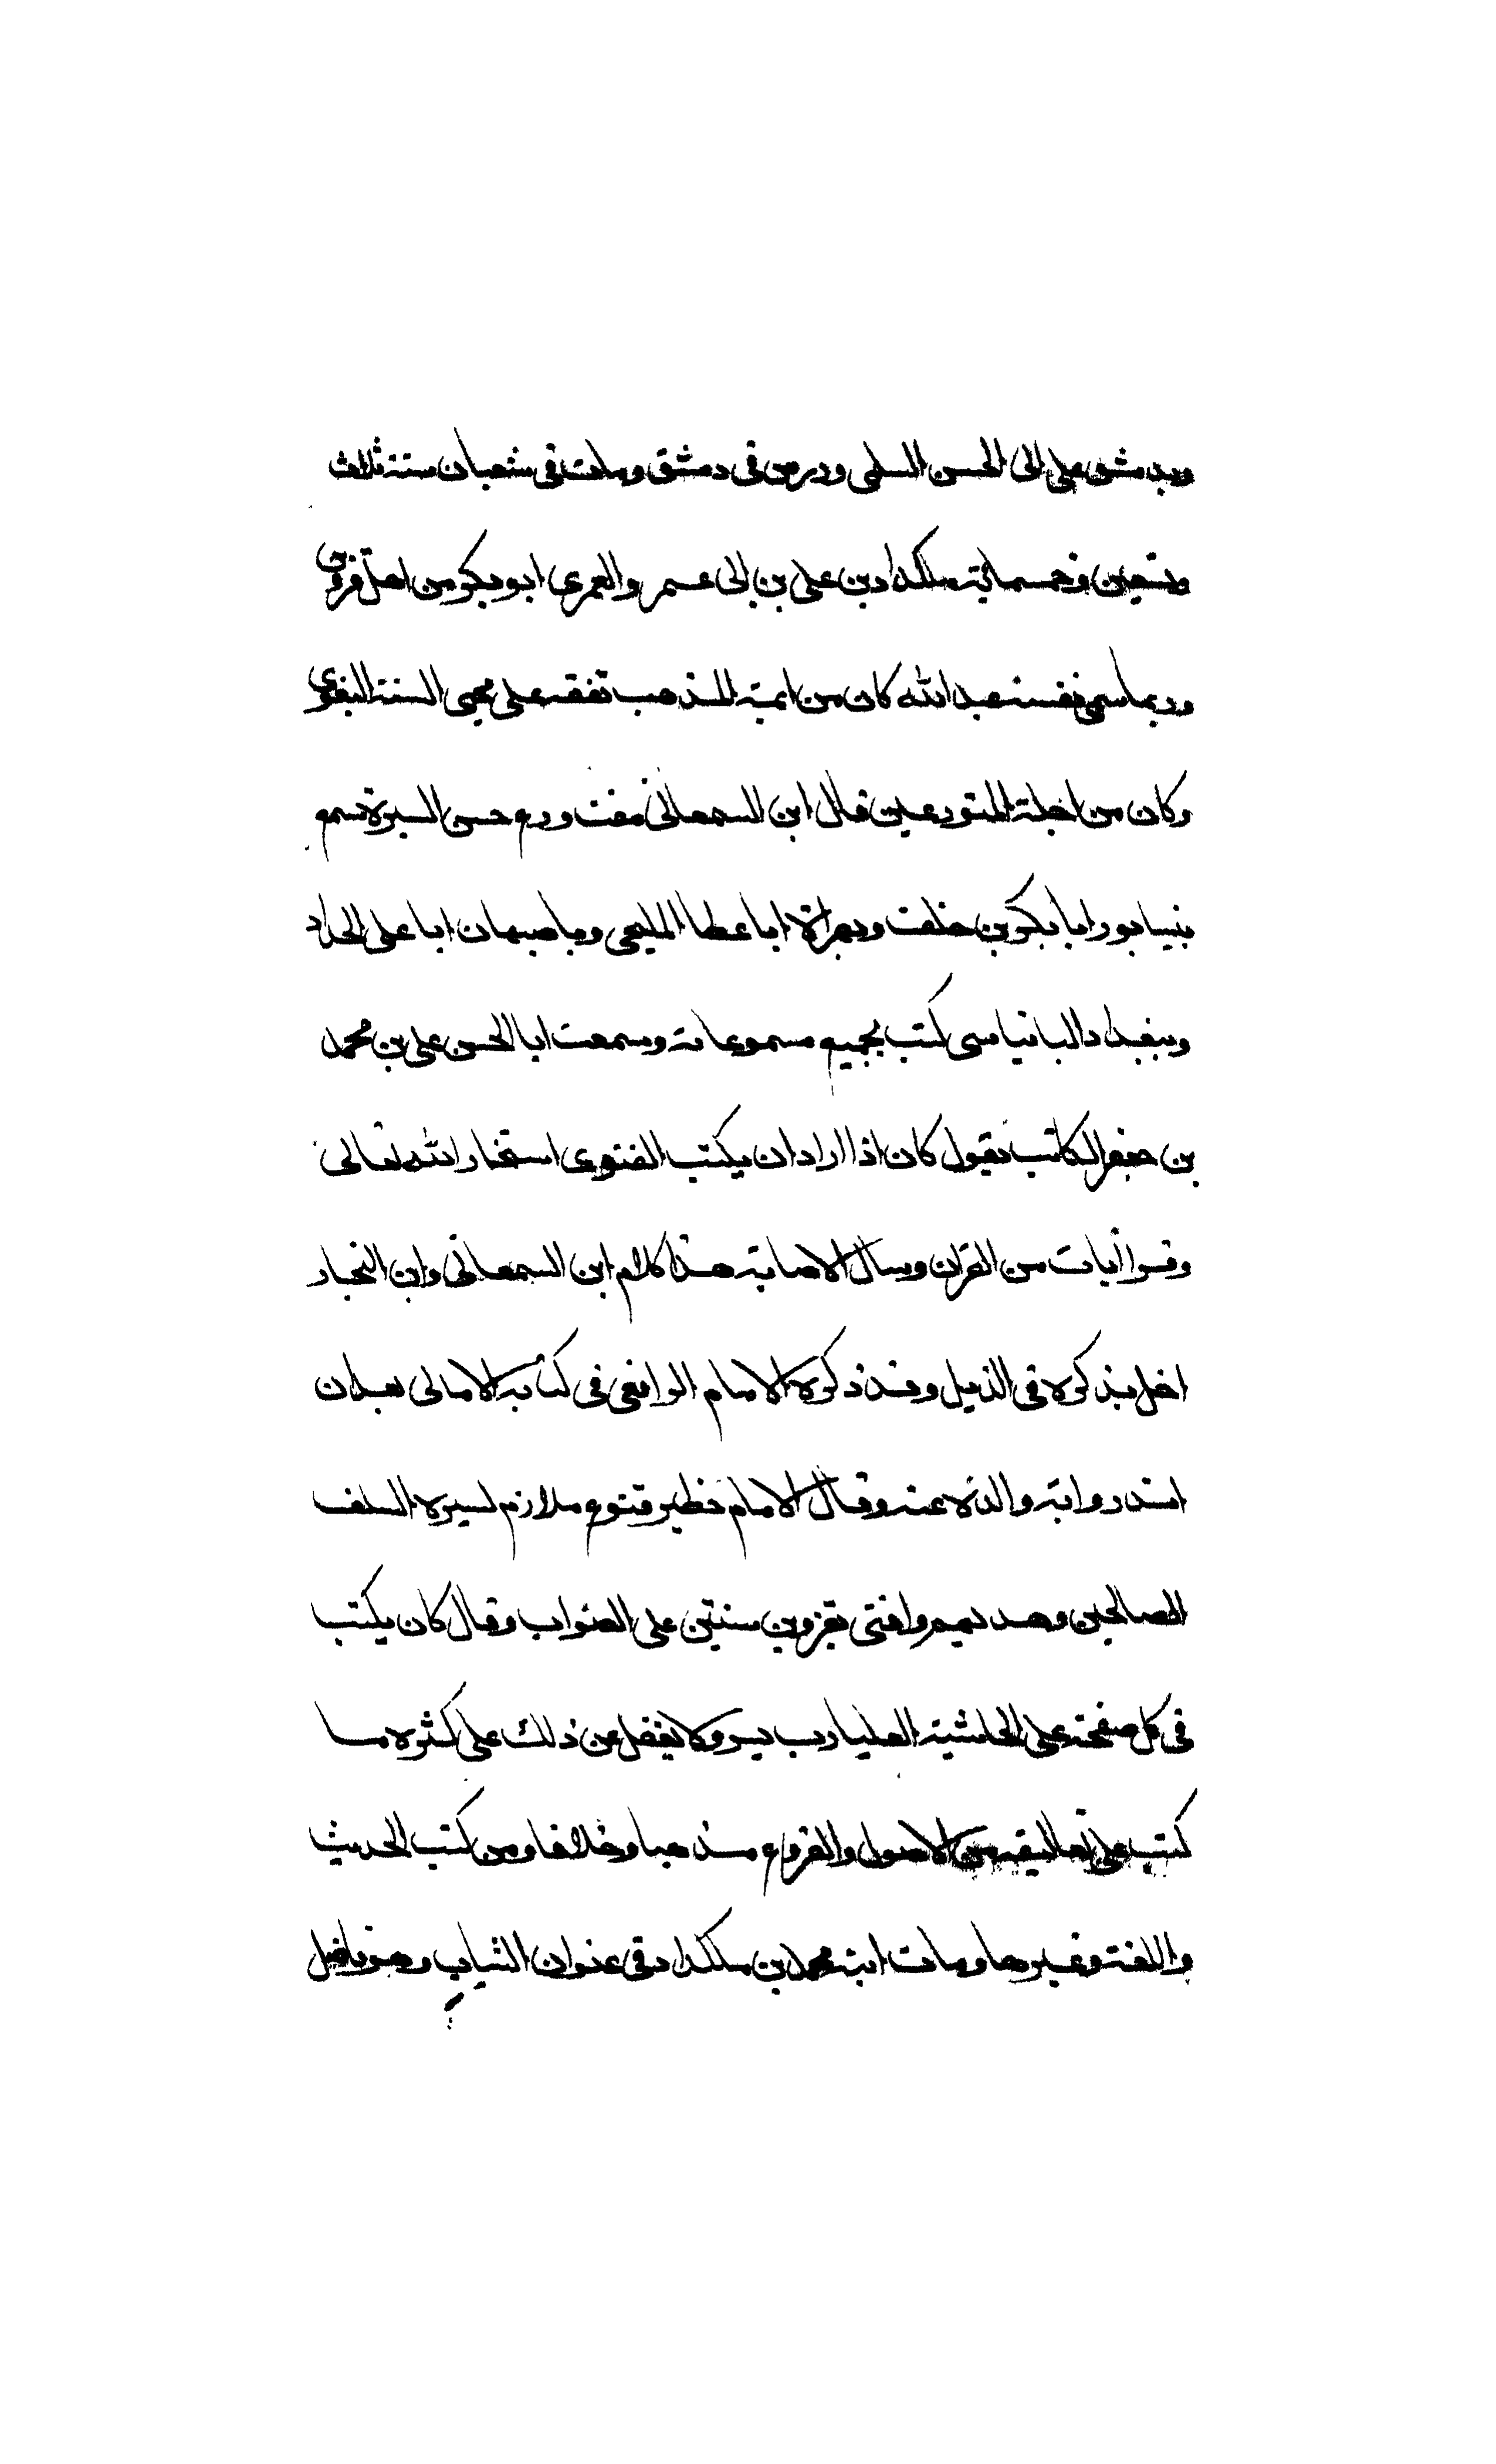 وبدمشق على ابى الحسن السلمى ودرس فى دمشق ومات فى شعبان سنة ثلاث
وتسعين وخمسمائة ملكداد بن على بن ابى عمر والعمرى ابو بكر من اهل قزوين
وربما سمى نفسه عبد الله كان من ايمة المذهب تفقه على محيى السنة البغوى
وكان من اجلة المتورعين قال ابن السمعانى مفت ورع حسن السيرة سمع
بنيسابور ابا بكر بن خلف وبهراة ابا عطا المليحى وباصبهان ابا على الحداد
وببغداد البانياسى كتب بجميع مسموعاته وسمعت ابا الحسن على بن محمد
بن جعفر الكاتب يقول كان اذا اراد ان يكتب الفتوى استخار الله تعالى
وقرا آيات من القران وسال الاصابة هذا كلام ابن السمعانى وابن النجار
اخل بذكره فى الذيل وقد ذكره الامام الرافعى فى كتابه الامالى بعد ان
اسند رواية والده عنه وقال الامام خطير قنوع ملازم لسيرة السلف
الصالحين وهديهم وافتى بقزوين سنتين على الصواب وقال كان يكتب
فى كل صفحة على الحاشية العليا رب يسر ولا يغفل عن ذلك على كثرة ما
كتب على تعاليقه من الاصول والفروع مذهبا وخلافا ومن كتب الحديث
واللغة وغيرها ومات ابنه محمد بن ملكداد فى عنوان الشباب وهو فاضل